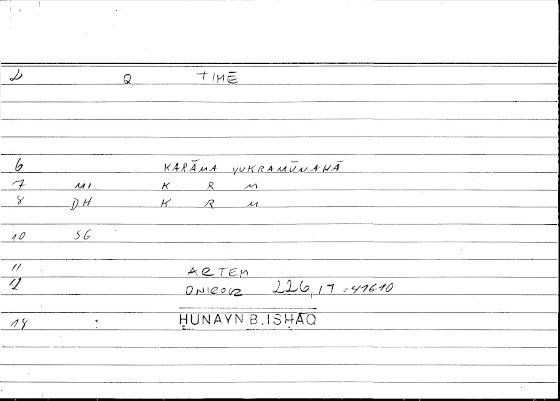 2 Q TIMĒ
6 KARĀMA YUKRAMŪNAHĀ
7 MI K R M
8 DH K R M
10 SG
11 ARTEM
12 ONIROCR 226,17 = 41610
14 : ḤUNAYN B. ISḤĀQ